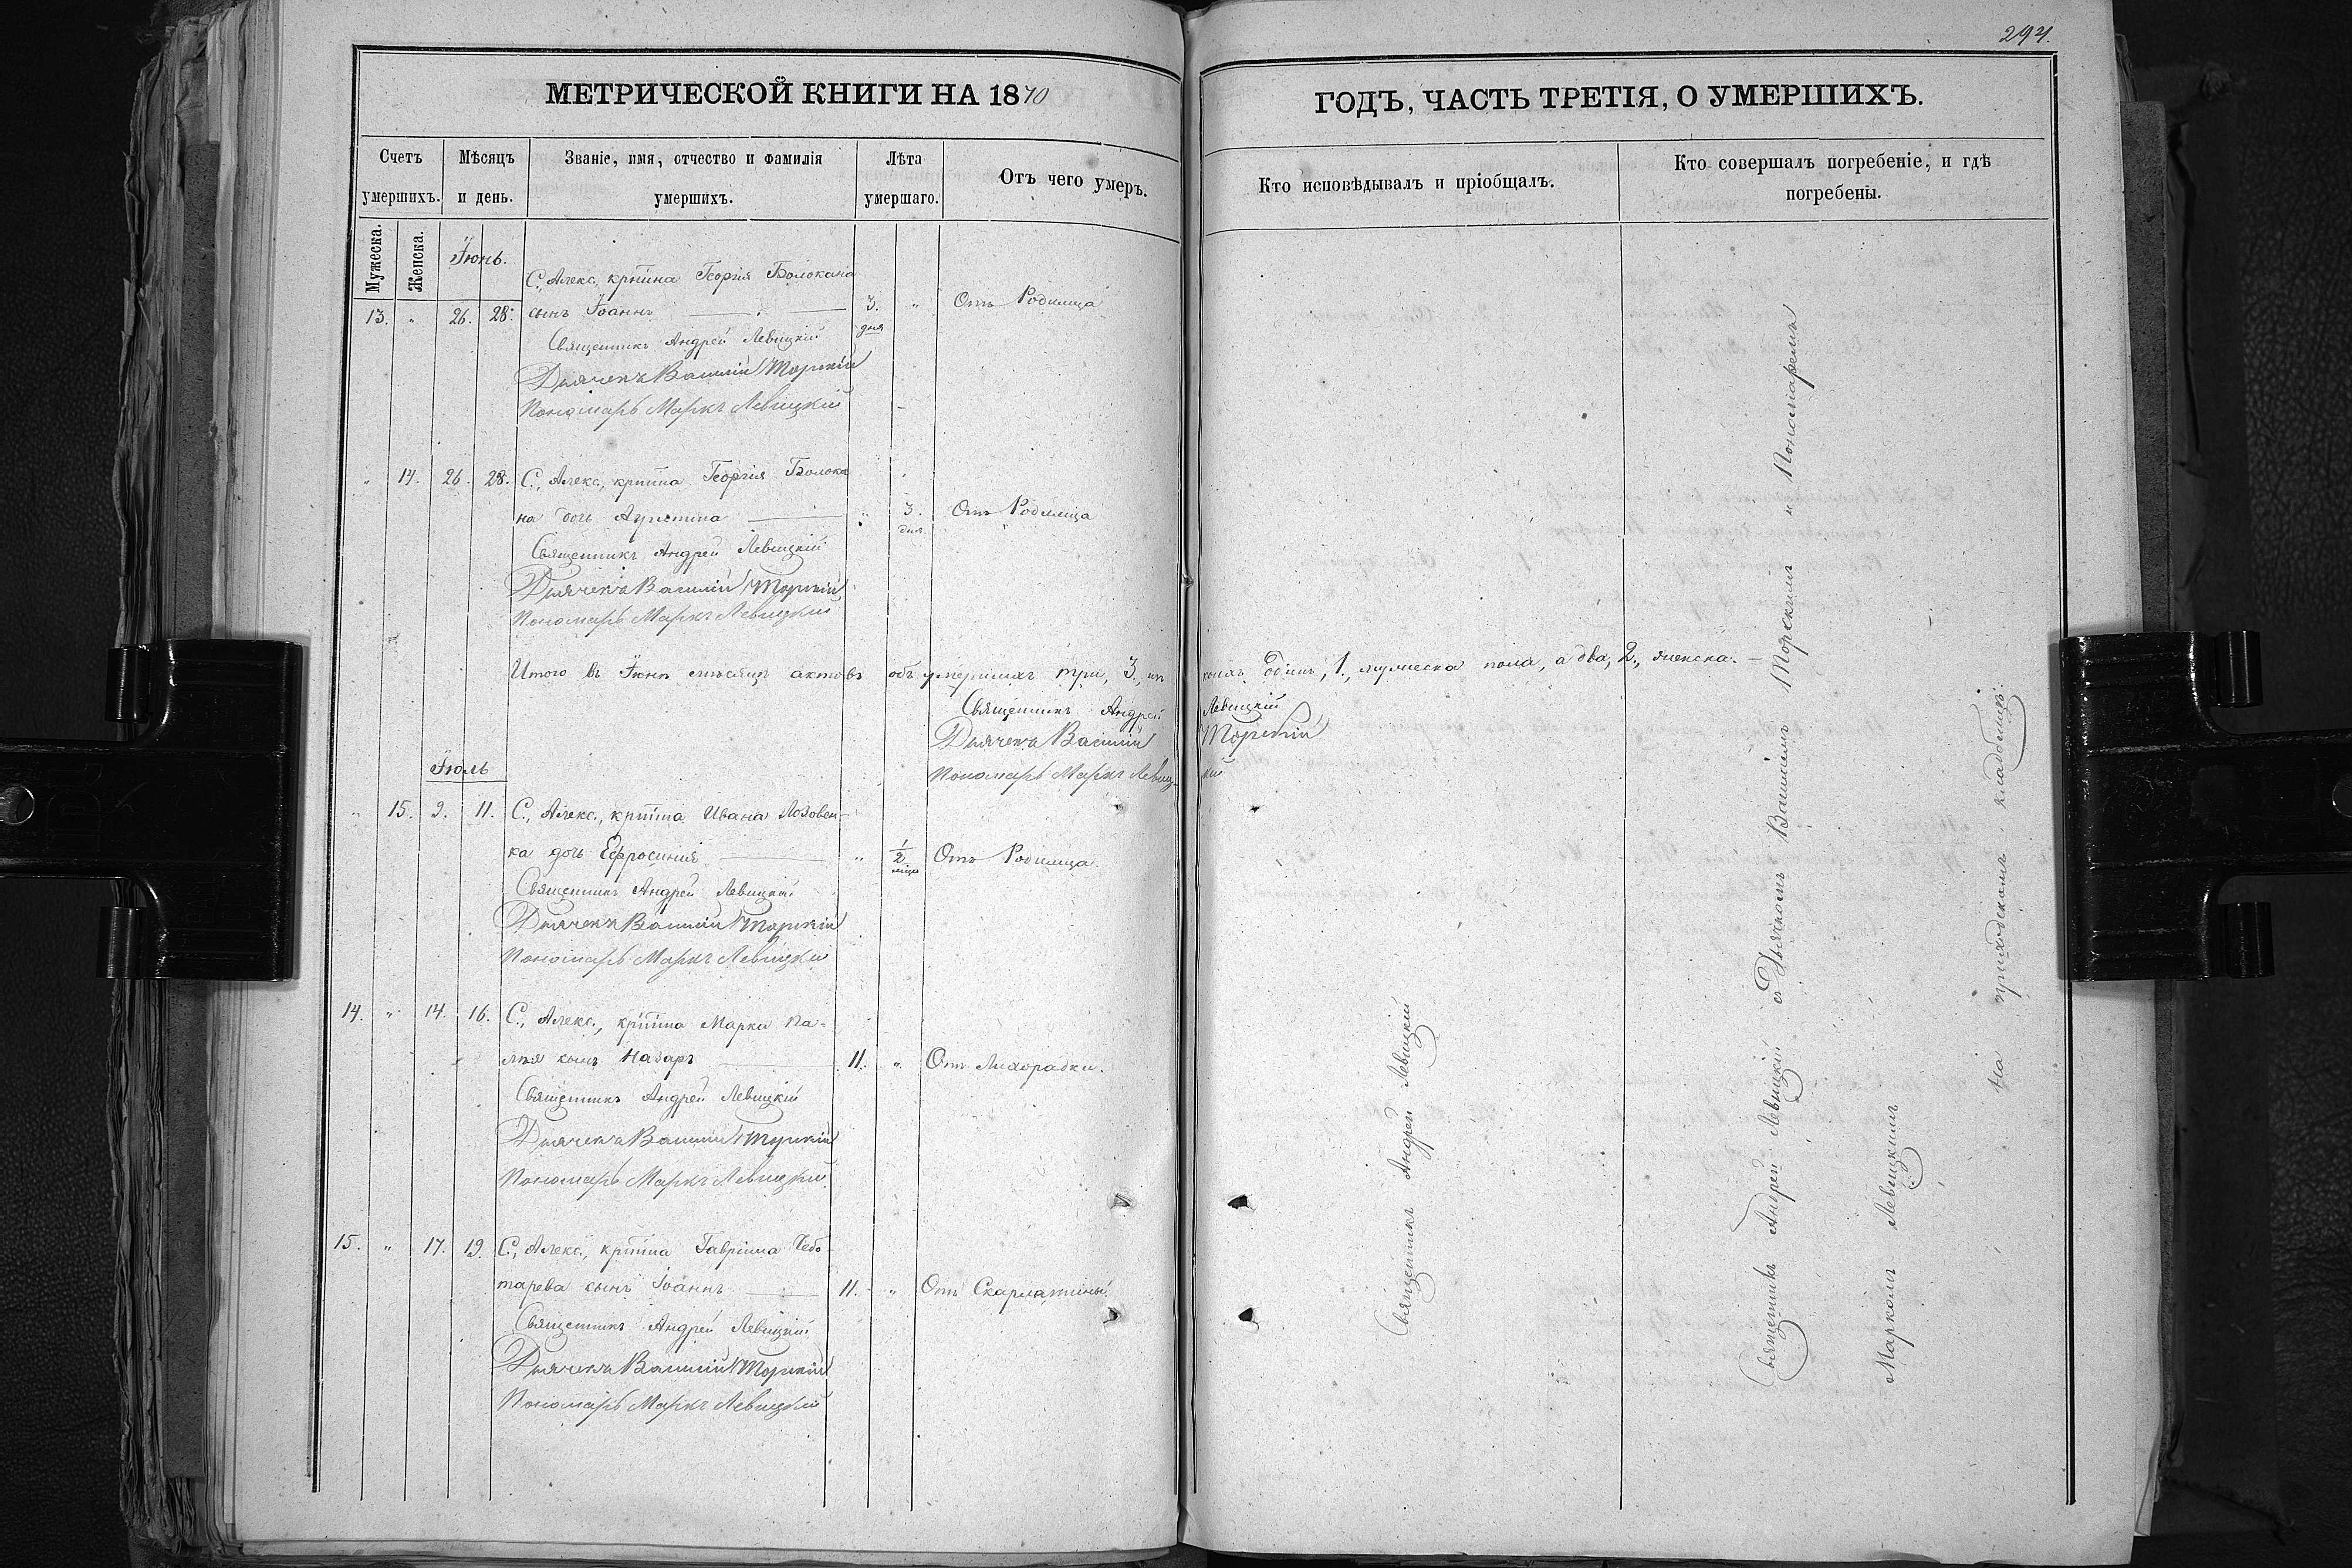 294.
МЕТРИЧЕСКОЙ КНИГИ НА 1870
ГОДЪ, ЧАСТЬ ТРЕТІЯ, О УМЕРШИХЪ.
Счетъ умершихъ.
Мѣсяцъ и день.
Званіе, имя, отчество и фамилія умершихъ.
Лѣта умершаго.
Отъ чего умеръ.
Кто исповѣдывалъ и пріобщалъ.
Кто совершалъ погребеніе, и гдѣ погребены.
Мужеска.
Женска.
Іюнь.
С., Алекс., кртина Георгія Болокана
13. " 26. 28. сынъ Іоаннъ 3. дня " Отъ Родимца
Священникъ Андрей Левицкій
Дьячекъ Василій Торскій
Пономарь Маркъ Левицкій
" 14. 26. 28. С., Алекс., кртина Георгія Болока
на дочь " 3. дня Отъ Родимца
Священникъ Андрей Левицкій
Дьячекъ Василій Торскій
Пономарь Маркъ Левицкій
Итого въ Іюнѣ мѣсяцѣ актовъ объ умершихъ три, 3, изъ коихъ одинъ, 1., мужеска пола, а два, 2., женска. —
Священникъ Андрей Левицкій
Дьячекъ Василій Торскій
Пономарь Маркъ Левицкій
Іюль
" 15. 9. 11. С., Алекс., кртина Ивана Лозовен-
ка дочь Ефросинія " 1/2 мца Отъ Родимца.
Священникъ Андрей Левицкій
Дьячекъ Василій Торскій
Пономарь Маркъ Левицкій
14. " 14. 16. С., Алекс., кртина Марка Па-
лія сынъ Назаръ 11. " Отъ Лихорадки.
Священникъ Андрей Левицкій
Дьячекъ Василій Торскій
Пономарь Маркъ Левицкій
15. " 17. 19. С., Алекс., кртина Гавріила Чебо-
тарева сынъ Іоаннъ 11. " Отъ Скарлатины.
Священникъ Андрей Левицкій
Дьячекъ Василій Торскій
Пономарь Маркъ Левицкій
Священникъ Андрей Левицкій
Священникъ Андрей Левицкій съ Дьячкомъ Василіемъ Торскимъ и Пономаремъ
Маркомъ Левицкимъ
На приходскомъ кладбищѣ.